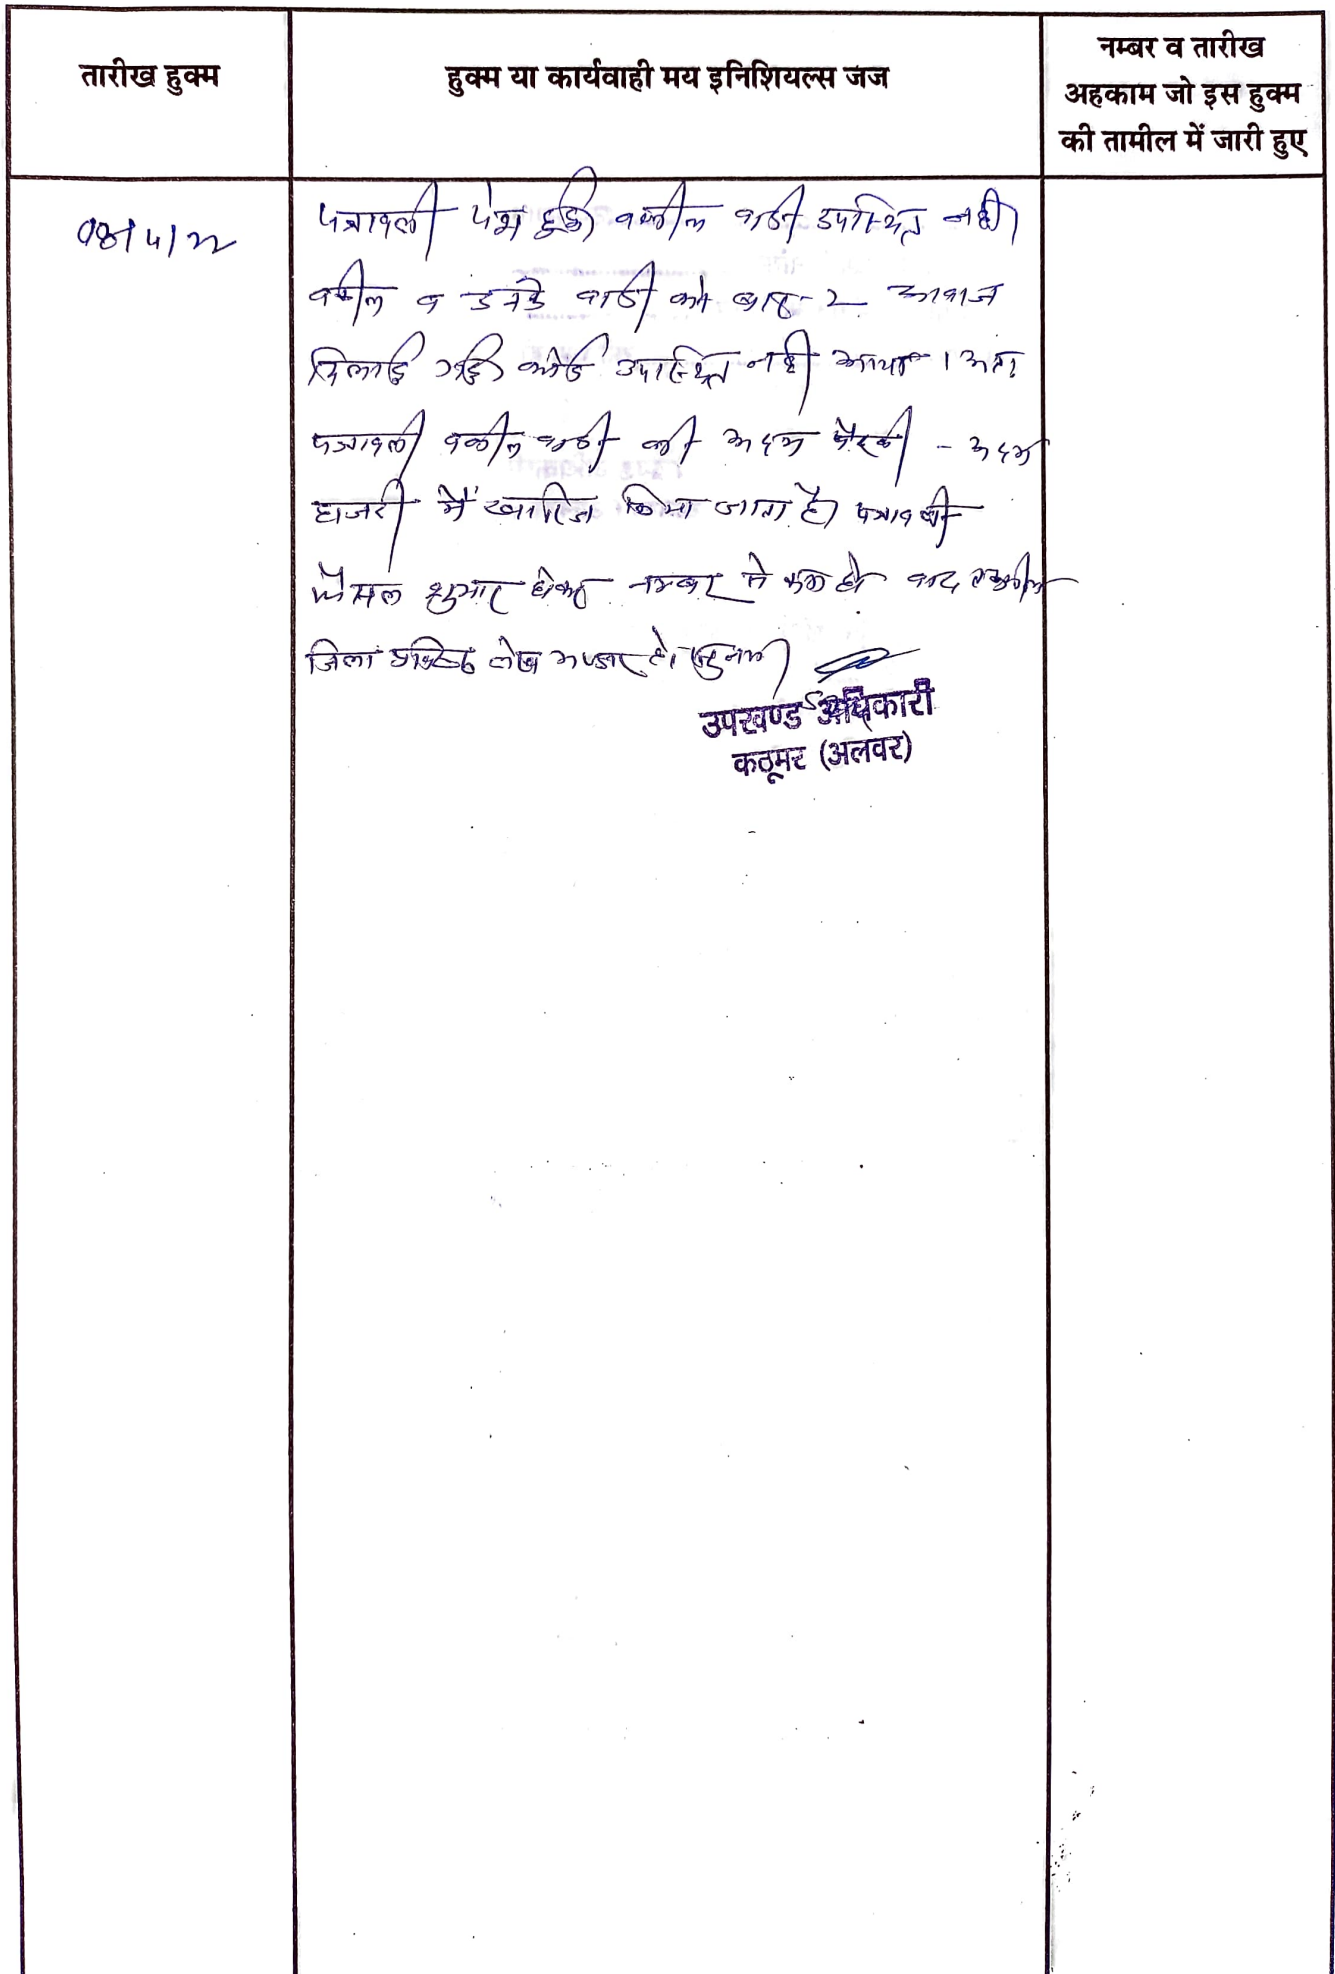 तारीख हुक्म
हुक्म या कार्यवाही मय इनिशियल्स जज
नम्बर व तारीख
अहकाम जो इस हुक्म
की तामील में जारी हुए
पत्रावली पेश हुई। वकील वादी उपस्थित नही।
वकील व उनके वादी को बार-2 आवाज
दिलाई गई। कोई उपस्थित नही आया। अतः
पत्रावली वकील वादी की अदम पैरवी - अदम
हाजरी में खारिज किया जाता है। पत्रावली
फैसल शुमार होकर नम्बर से कम हो बाद तकमील
जिला लेख भण्डार हो।
उपखण्ड अधिकारी
कठूमर (अलवर)